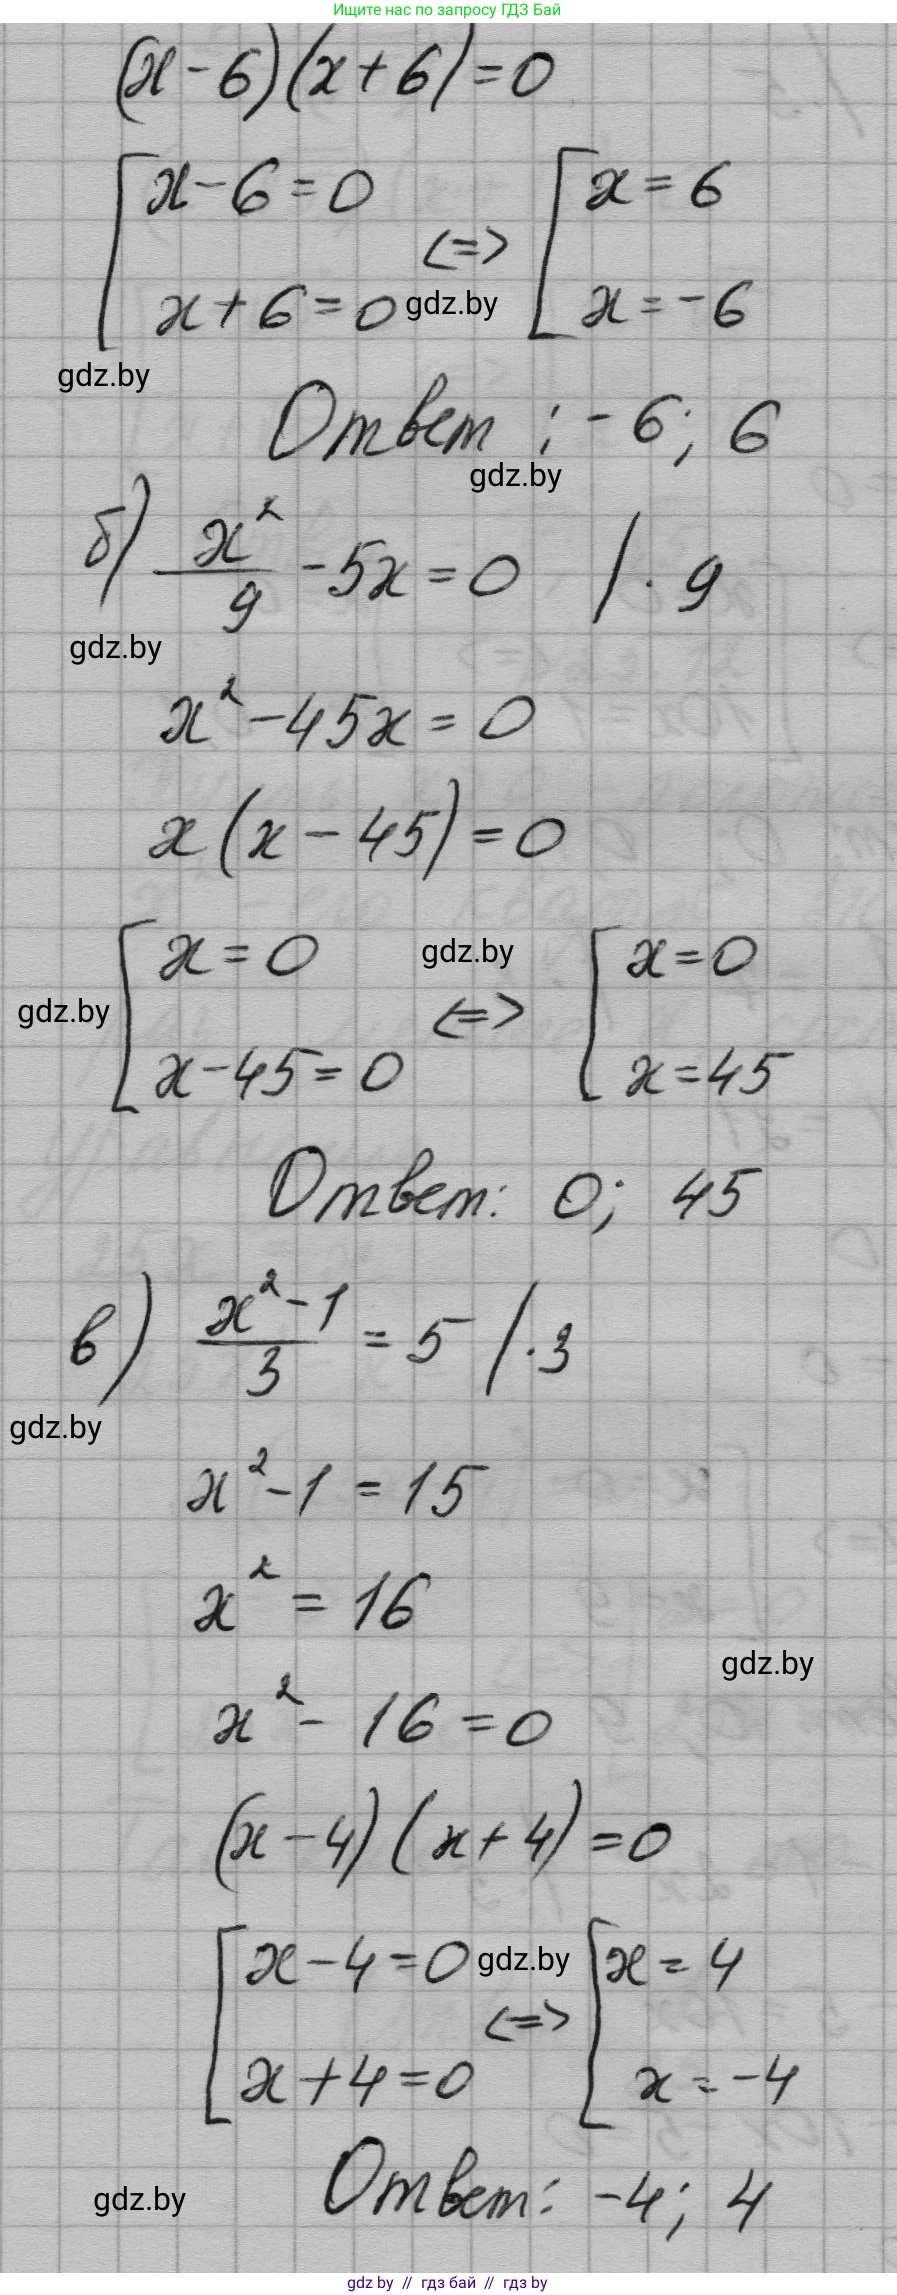 Ищите нас по запросу ГДЗ Бай
(x-6)(x+6)=0
[x-6=0 <=> [x=6
x+6=0 gdz.by x=-6
gdz.by
Ответ: -6; 6
gdz.by
б) x²/9 -5x=0 /·9
gdz.by
x²-45x=0
x(x-45)=0
[x=0 gdz.by [x=0
gdz.by <=>
x-45=0 x=45
Ответ: 0; 45
в) (x²-1)/3 = 5 /·3
gdz.by
x²-1=15
x²=16
gdz.by
x²-16=0
(x-4)(x+4)=0
[x-4=0 gdz.by [x=4
<=>
x+4=0 x=-4
Ответ: -4; 4
gdz.by
gdz by // гдз бай // gdz by